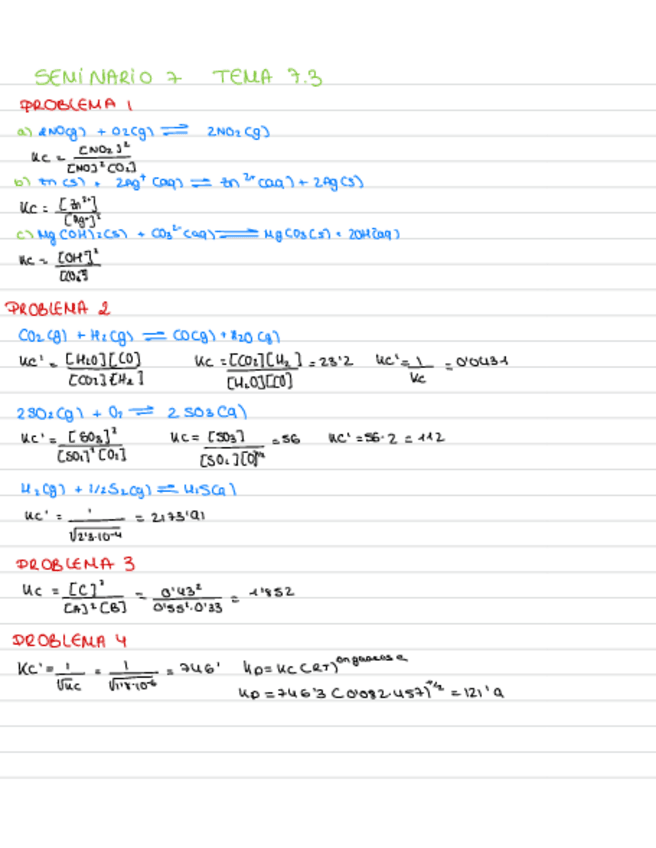 SEMINARIO 7 TEMA 7.3
PROBLEMA 1
a) 2NO(g) + O2(g) ⇌ 2NO2(g)
Kc = [NO2]² / [NO]²[O2]
b) Zn(s) + 2Ag⁺(aq) ⇌ Zn²⁺(aq) + 2Ag(s)
Kc = [Zn²⁺] / [Ag⁺]²
c) Mg(OH)2(s) + CO3²⁻(aq) ⇌ MgCO3(s) + 2OH⁻(aq)
Kc = [OH⁻]² / [CO3²⁻]
PROBLEMA 2
CO2(g) + H2(g) ⇌ CO(g) + H2O(g)
Kc' = [H2O][CO] / [CO2][H2] Kc = [CO2][H2] / [H2O][CO] = 23'2 Kc' = 1 / Kc = 0'0431
2SO2(g) + O2 ⇌ 2SO3(g)
Kc' = [SO3]² / [SO2]²[O2] Kc = [SO3] / [SO2][O]^½ = 56 Kc' = 56·2 = 112
H2(g) + 1/2S2(g) ⇌ H2S(g)
Kc' = 1 / √2'3·10⁻⁴ = 2173'91
PROBLEMA 3
Kc = [C]² / [A]²[B] = 0'43² / 0'55²·0'33 = 1'852
PROBLEMA 4
Kc' = 1 / √Kc = 1 / √1'8·10⁻⁶ = 746' Kp = Kc(RT)
Kp = 746'3 (0'082·457) = 121'